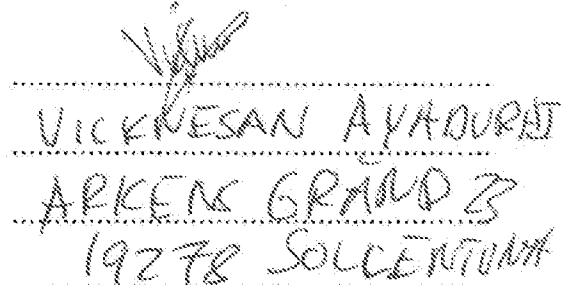 VICKNESAN AYADURAI
ARKENS GRÄND 23
19278 SOLLENTUNA